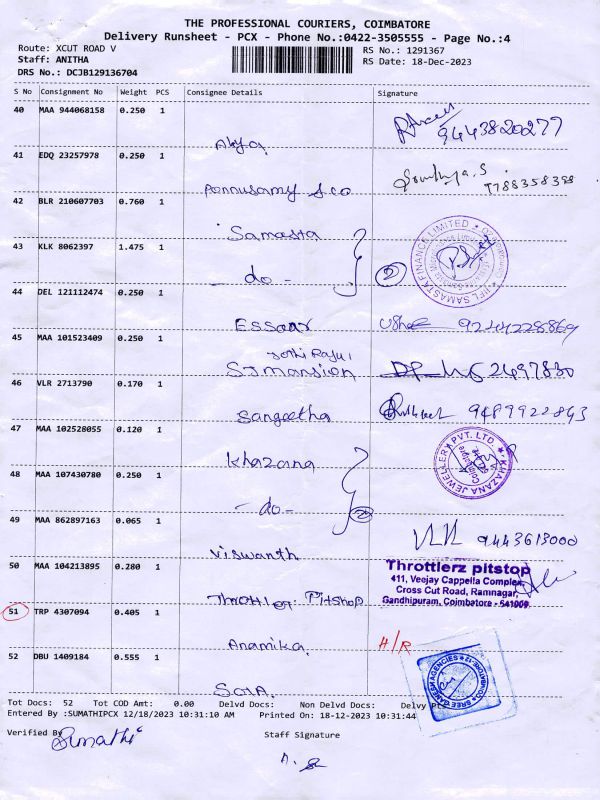 THE PROFESSIONAL COURIERS, COIMBATORE
Delivery Runsheet - PCX - Phone No.:0422-3505555 - Page No.:4
Route: XCUT ROAD V
RS No.: 1291367
Staff: ANITHA
RS Date: 18-Dec-2023
DRS No.: DCJB129136704
S No Consignment No Weight PCS Consignee Details Signature
40 MAA 944068158 0.250 1
9443820277
41 EDQ 23257978 0.250 1
Ponnusamy & co
42 BLR 210607703 0.760 1
Samasta
43 KLK 8062397 1.475 1
- do - 2
IIFL SAMASTA FINANCE LIMITED
44 DEL 121112474 0.250 1
Essaar
45 MAA 101523409 0.250 1
Jothi Raju,
SJ mansion
46 VLR 2713790 0.170 1
Sangeetha
47 MAA 102528055 0.120 1
Khazana
KHAZANA JEWELLERY PVT. LTD.
Coimbatore
48 MAA 107430780 0.250 1
- do - 2
49 MAA 862897163 0.065 1
Viswanth 9443613000
50 MAA 104213895 0.280 1
Throttler Pitshop
Throttlerz pitstop
411, Veejay Cappella Complex,
Cross Cut Road, Ramnagar,
Gandhipuram, Coimbatore - 641009.
51 TRP 4307094 0.405 1
Anamika. H/R
52 DBU 1409184 0.555 1
SREE GANESH AGENCIES
Tot Docs: 52 Tot COD Amt: 0.00 Delvd Docs: Non Delvd Docs: Delvy
Entered By :SUMATHIPCX 12/18/2023 10:31:10 AM Printed On: 18-12-2023 10:31:44
Verified By Sumathi
Staff Signature